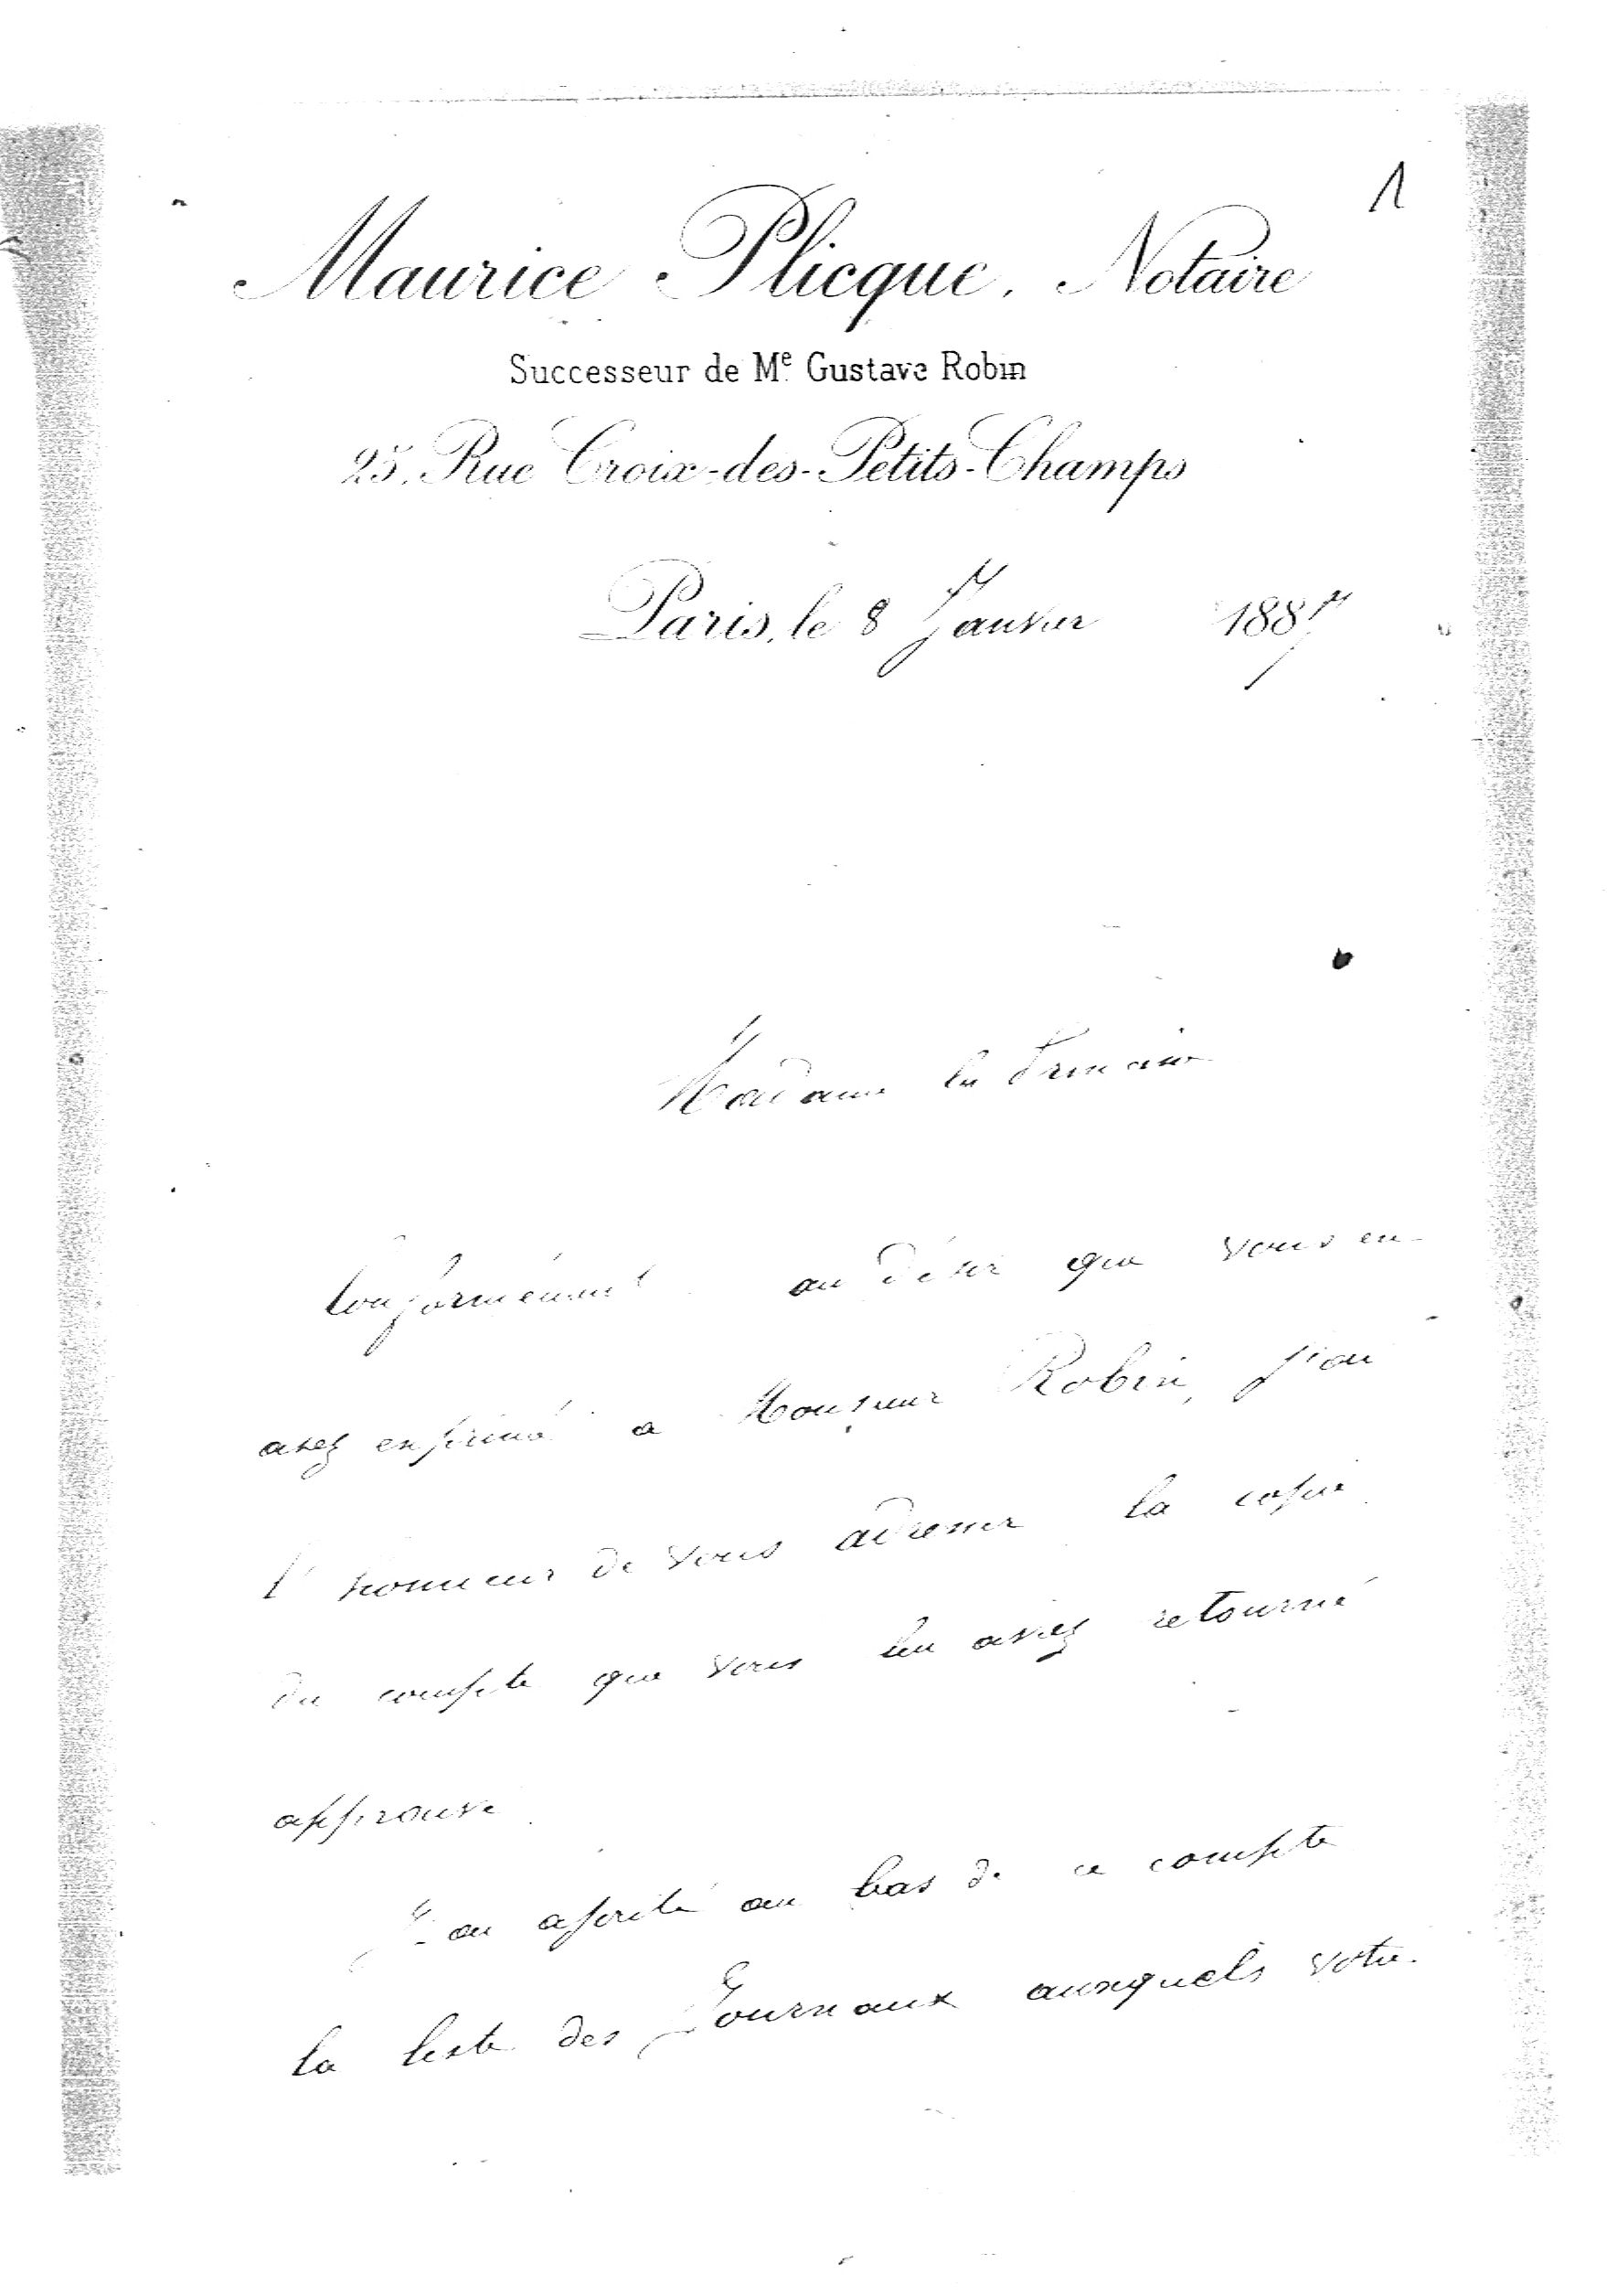 1
Maurice Plicque, Notaire
Successeur de Me Gustave Robin
25, Rue Croix-des-Petits-Champs
Paris, le 8 Janvier 1887
Madame la
Conformément au désir que vous en
avez exprimé à Monsieur Robin, j'ai
l'honneur de vous adresser la copie
du compte que vous lui aviez retourné
approuvé.
J'ai ajouté au bas de ce compte
la liste des Journaux auxquels votre